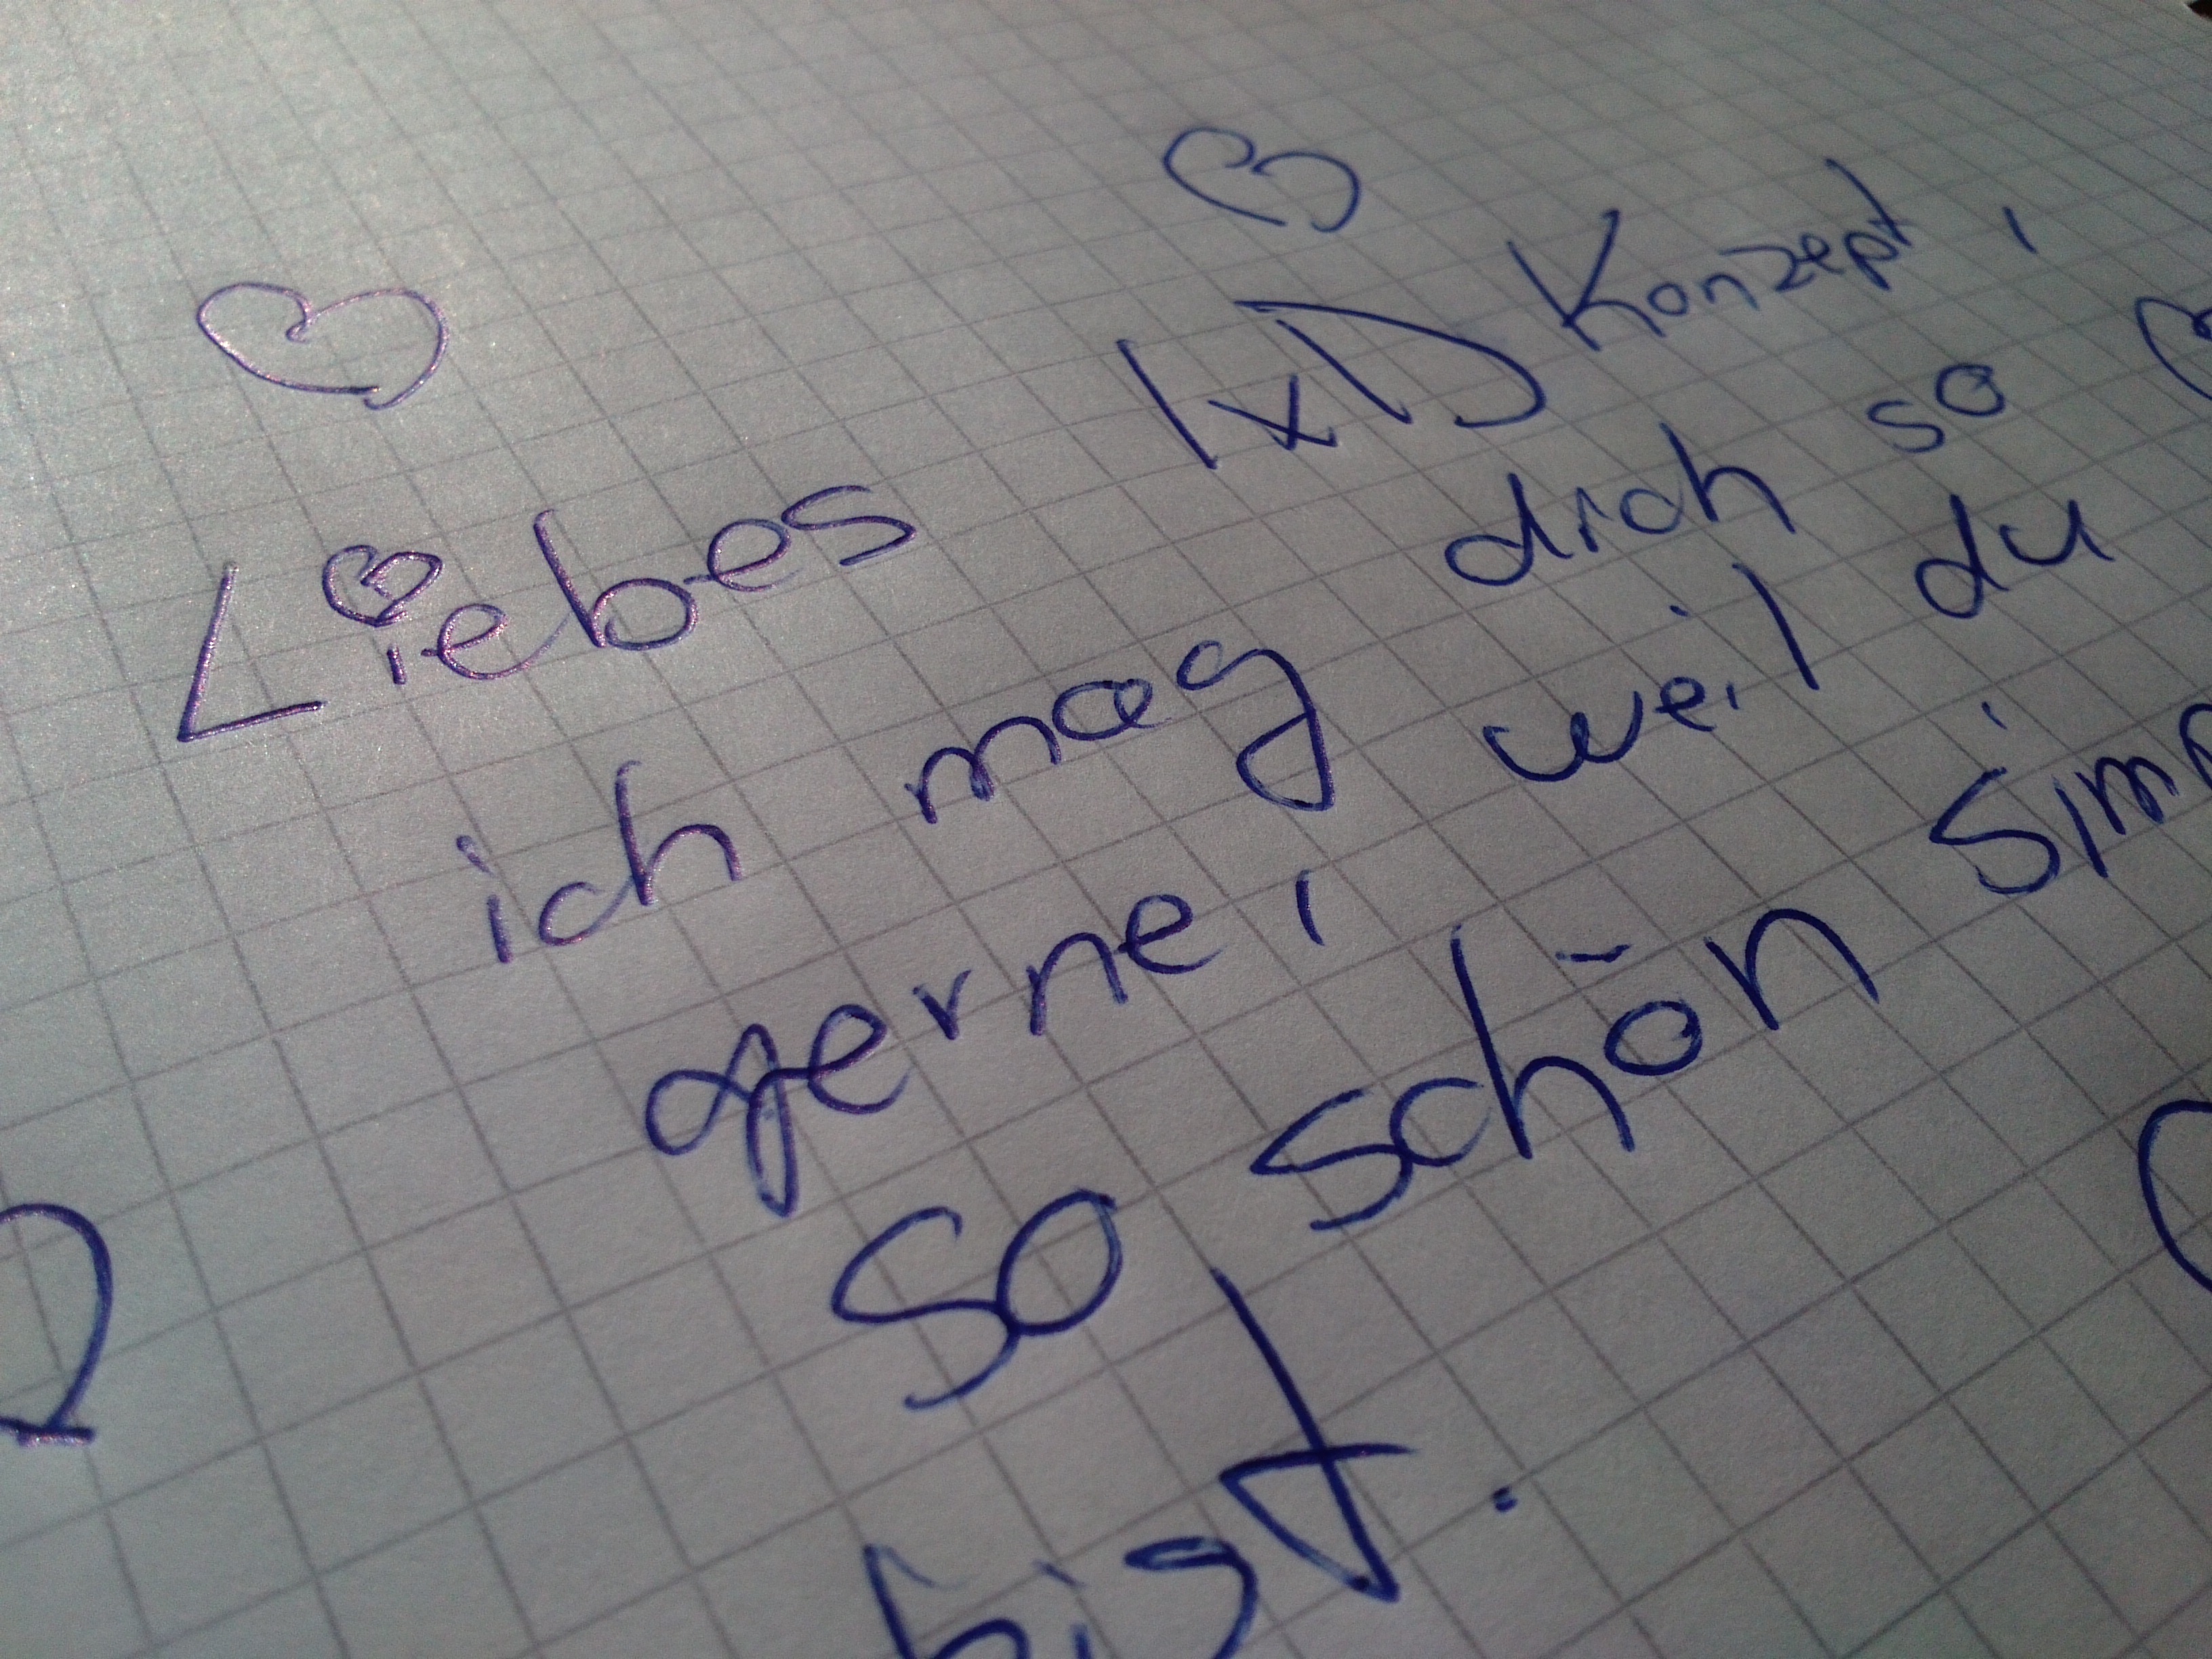 Liebes IxD Konzept,
ich mag dich so
gerne, weil du
so schön simp
bist.